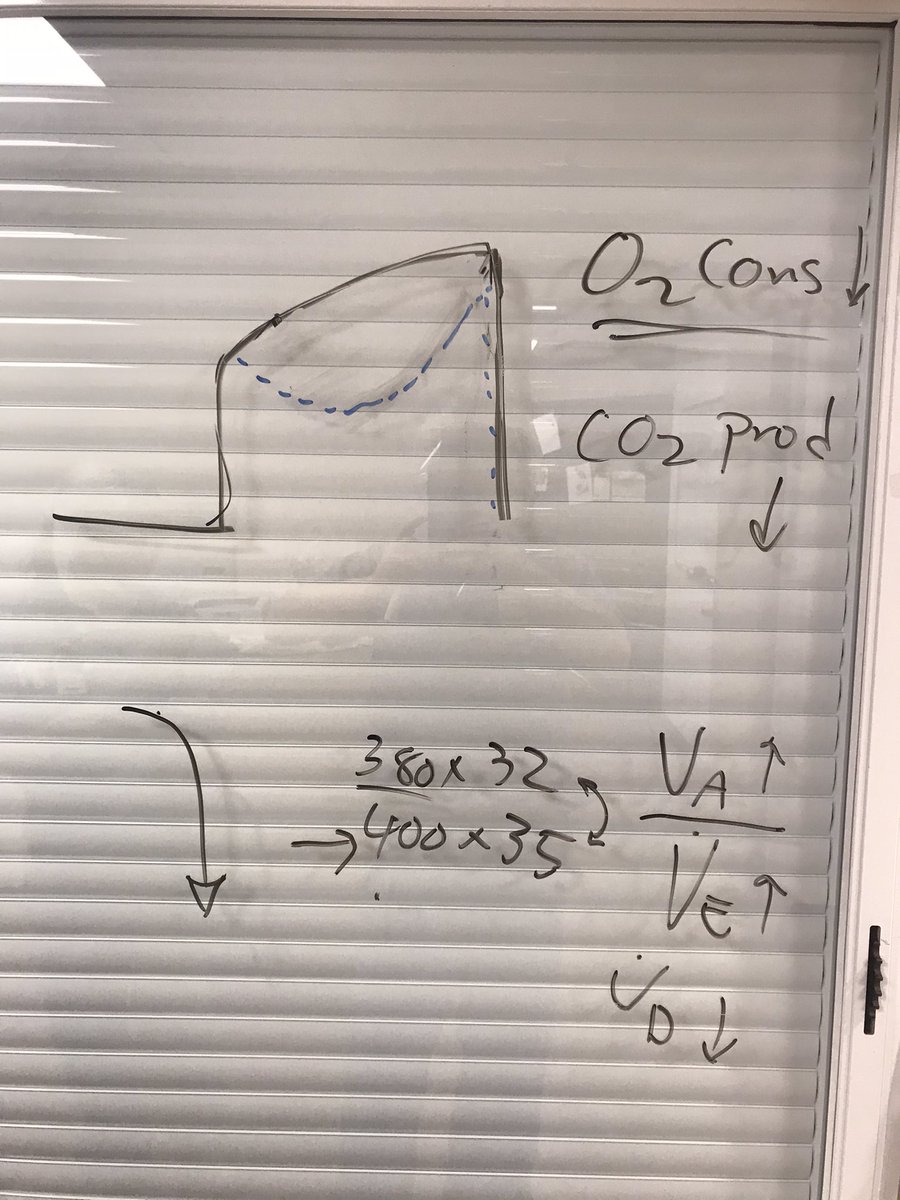 O₂ Cons ↓
CO₂ prod
↓
380 x 32
→ 400 x 35
V̇A ↑
V̇E ↑
V̇D ↓